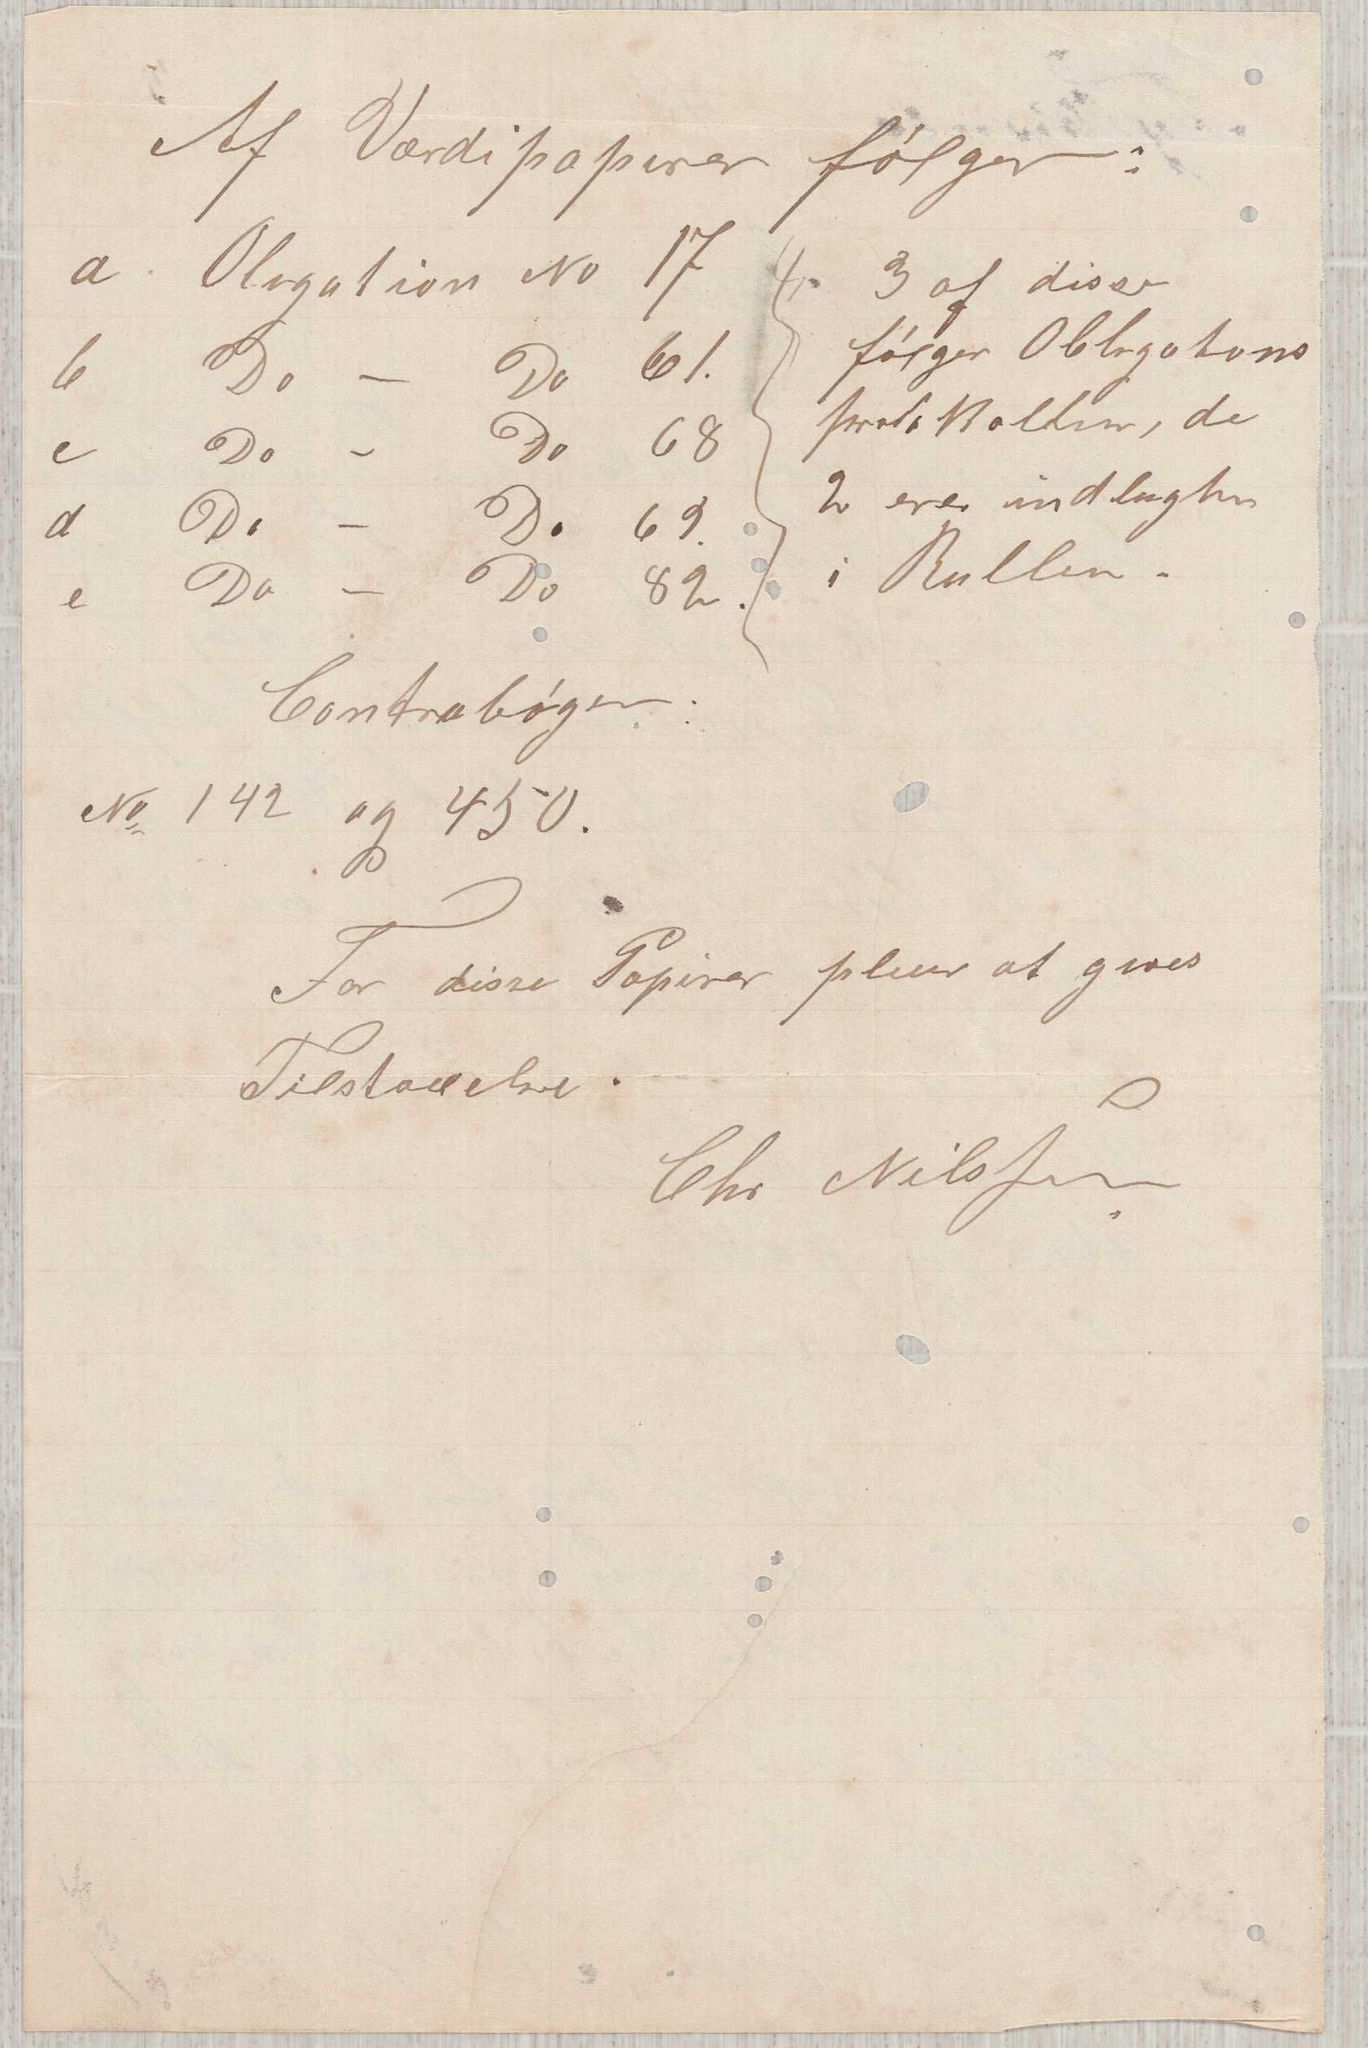 Af Værdipapirer følger:
a. Olıgation No 17
b Do - Do 61.
c Do - Do 68
d Do - Do 69.
e Do - Do 82.
3 af disse
følger Obligations
protokollen, de
2 ere indlagte
i Rullen.
Contrabøger:
No 142 og 450.
For disse Papirer at gives
Tilstaaelse.
Chr Nilssen